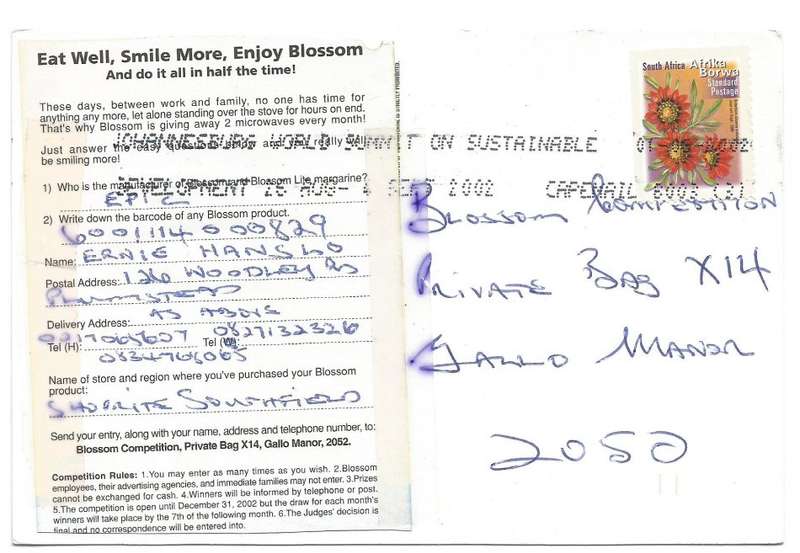 Eat Well, Smile More, Enjoy Blossom
And do it all in half the time!
These days, between work and family, no one has time for
anything any more, let alone standing over the stove for hours on end.
That's why Blossom is giving away 2 microwaves every month!
Just answer the easy questions below and you really will
be smiling more!
1) Who is the manufacturer of Blossom and Blossom Lite margarine?
2) Write down the barcode of any Blossom product.
6001114000829
Name: ERNIE HANSLO
Postal Address: 126 WOODLEY RD
PLUMSTEAD
Delivery Address: AS ABOVE
Tel (H): 0217065607 Tel (W): 0827132326
0834766065
Name of store and region where you've purchased your Blossom
product:
SHOPRITE SOUTHFIELD
Send your entry, along with your name, address and telephone number, to:
Blossom Competition, Private Bag X14, Gallo Manor, 2052.
Competition Rules: 1.You may enter as many times as you wish. 2.Blossom
employees, their advertising agencies, and immediate families may not enter. 3.Prizes
cannot be exchanged for cash. 4.Winners will be informed by telephone or post.
5.The competition is open until December 31, 2002 but the draw for each month's
winners will take place by the 7th of the following month. 6.The Judges' decision is
final and no correspondence will be entered into.
South Africa Afrika
Borwa
Standard
Postage
JOHANNESBURG WORLD SUMMIT ON SUSTAINABLE
DEVELOPMENT 26 AUG - 4 SEPT 2002 CAPEMAIL
BLOSSOM COMPETITION
PRIVATE BAG X14
GALLO MANOR
2052